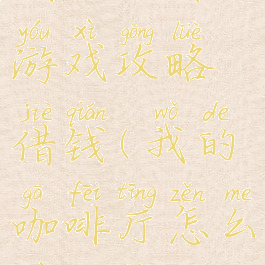 yóu xì gōng lüè
游戏攻略
jiè qián wǒ de
借钱(我的
gā fēi tīng zěn me
咖啡厅怎么